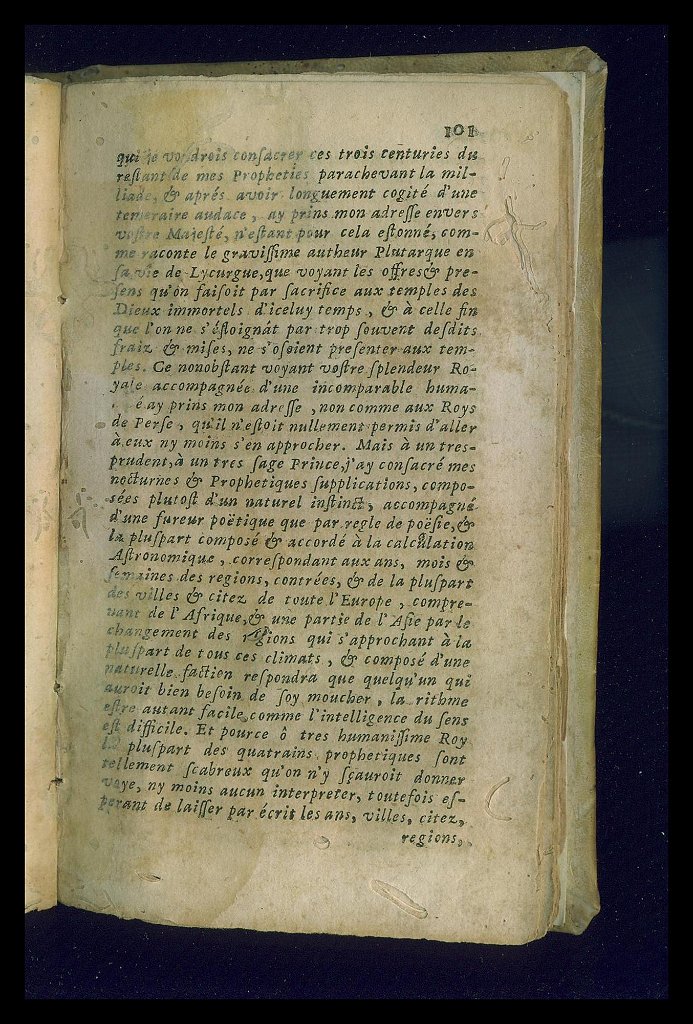 101
qui je voudrois conſacrer ces trois centuries du
reſtant de mes Propheties parachevant la mil-
liade, & aprés avoir longuement cogité d'une
temeraire audace, ay prins mon adreſſe envers
voſtre Majeſté, n'eſtant pour cela eſtonné, com-
me raconte le graviſſime autheur Plutarque en
ſa vie de Lycurgue, que voyant les offres & pre-
ſens qu'on faiſoit par ſacrifice aux temples des
Dieux immortels d'iceluy temps, & à celle fin
que l'on ne s'éſloignât par trop ſouvent deſdits
fraiz & miſes, ne s'oſoient preſenter aux tem-
ples. Ce nonobſtant voyant voſtre ſplendeur Ro-
yale accompagnée d'une incomparable huma-
é ay prins mon adreſſe, non comme aux Roys
de Perſe, qu'il n'eſtoit nullement permis d'aller
à eux ny moins s'en approcher. Mais à un tres-
prudent, à un tres ſage Prince, j'ay conſacré mes
nocturnes & Prophetiques ſupplications, compo-
sées plutoſt d'un naturel inſtinct, accompagné
d'une fureur poëtique que par regle de poëſie, &
la pluſpart compoſé & accordé à la calculation
Aſtronomique, correſpondant aux ans, mois &
ſemaines des regions, contrées, & de la pluſpart
des villes & citez de toute l'Europe, compre-
nant de l'Afrique, & une partie de l'Aſie par le
changement des regions qui s'approchant à la
pluſpart de tous ces climats, & compoſé d'une
naturelle faction reſpondra que quelqu'un qui
auroit bien beſoin de ſoy moucher, la rithme
eſtre autant facile, comme l'intelligence du ſens
eſt difficile. Et pource ô tres humaniſſime Roy
la pluſpart des quatrains prophetiques ſont
tellement ſcabreux qu'on n'y ſçauroit donner
voye, ny moins aucun interpreter, toutefois eſ-
perant de laiſſer par écrit les ans, villes, citez,
regions,